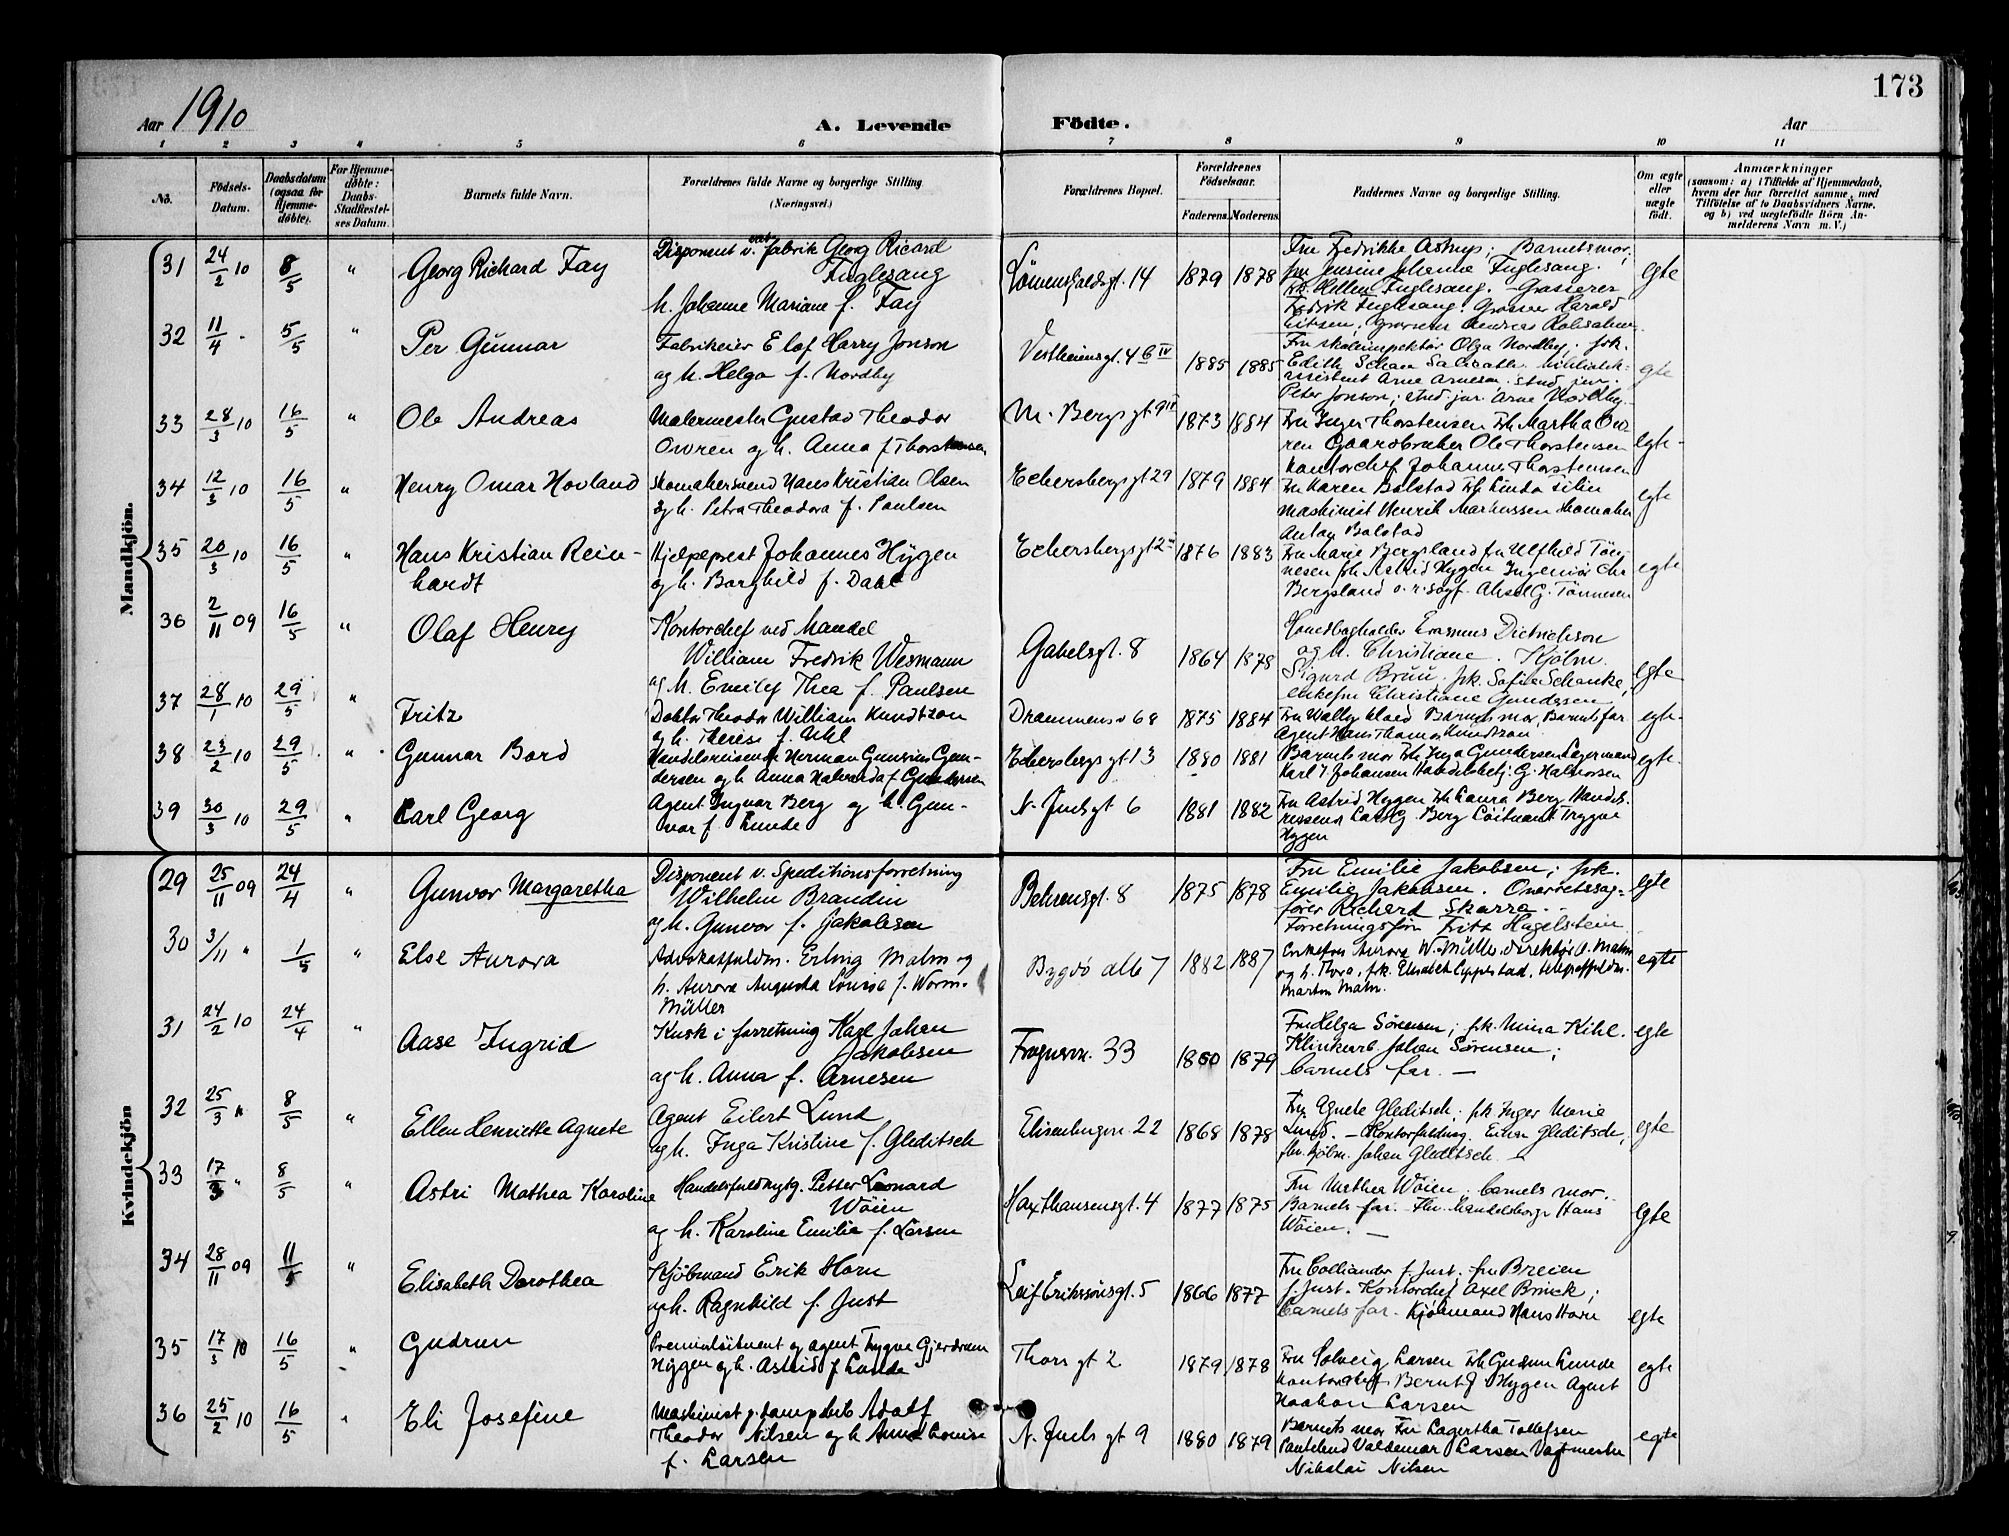 173
Aar 1910 A. Levende Födte. Aar
1 2 3 4 5 6 7 8 9 10 11
No.
Födsels-Datum.
Daabsdatum (ogsaa for Hjemme-döbte).
For Hjemme-döbte: Daabs-Stadfestel-ses Datum.
Barnets fulde Navn.
Forældrenes fulde Navne og borgerlige Stilling. (Næringsvei.)
Forældrenes Bopæl.
Forældrenes Födselsaar.
Faderens. Moderens.
Faddernes Navne og borgerlige Stilling.
Om ægte eller uægte födt.
Anmærkninger
(saasom: a) i Tilfælde af Hjemmedaab,
hvem der har forrettet samme, med
Tilföielse af to Daabsvidners Navne.
og b) ved uægtefödte Börn An-
melderens Navn m. V.)
Mandkjön.
31 24/2 10 8/5 " Georg Richard Fay
Disponent v. fabrik Georg Ricard
Fuglesang
h. Johanne Mariane f. Fay
Lövenskjoldsgt. 14 1879 1878
Fru Fredrikke Astrup; Barnets mor;
fru Jensine Johanne Fuglesang.
Fuglesang. Grosserer
Fredrik Fuglesang. Grosserer Harald
egte
32 11/4 - 5/5 " Per Gunnar
Fabrikeier Elof Harry Jonson
og h. Helga f. Nordby
Vestheimsgt. 4 b IV 1885 1885
Fru skoleinspektör Olga Nordby; frk.
Edith Schou bibliotek-
assistent Arne Arnesen, stud. jur.
Peter Jonson; stud. jur. Arne Nordby.
egte
33 28/3 10 16/5 " Ole Andreas
Malermester Gustav Theodor
Owren og h. Anna f. Thorstensen
M. Bergs gt 9 II 1873 1884
Fru Inger Thorstensen Frk Martha Ow-
ren Gaardbruker Ole Thorstensen
Kontorchef Johannes Thorstensen
egte
34 12/3 10 16/5 " Henry Omar Hovland
Skomakersvend Hans Kristian Olsen
og h. Petra Theodora f. Paulsen
Eckersbergsgt 29 1879 1884
Fr Karen Bolstad Frk Linda
Maskinist Henrik Markussen Skomaker
Anton Bolstad
egte
35 20/3 10 16/5 " Hans Kristian Rein-
hardt
Hjelpeprest Johannes Hygen
og h. Borghild f. Dahl
Eckersbergsgt 1876 1883
Fru Marie Bergsland fru Ulfhild Tön-
nesen frk Astrid Hygen Ingeniör Chr
Bergsland o.r.sagf. Aksel G. Tönnesen
egte
36 2/11 09 16/5 " Olaf Henry
Kontorchef ved handel
William Fredrik Wesmann
og h. Emily Thea f. Paulsen
Gabelsgt. 8 1864 1878
Hovedbogholder Erasmus Dietrichson
og h. Christiane. Kjöbm.
Sigurd Bruu. frk. Sofie Schanke,
enkefru Christiane Gundersen
egte
37 28/1 10 29/5 " Fritz
Doktor Theodor William Knudtzon
og h. Therese f. Uhl
Drammensv 68 1875 1884
Fru Wally Barnets mor, Barnets far
Agent Hans Thomas Knudtzon
egte
38 23/2 10 29/5 " Gunnar Bord
Handelsreisende Herman Gun-
dersen og h Anna Halvorda f Gundersen
Eckersbergs gt 13 1880 1881
Barnets mor Frk Inga Gundersen Lagermand
Karl J. Johansen Handelsbetj. G. Halvorsen
egte
39 30/3 10 29/5 " Carl Georg
Agent Ingvar Berg og h. Gun-
vor f. Lunde
N. Juels gt 6 1881 1882
Fru Astrid Hygen Frk Laura Berg Handels-
reisende Carl G. Berg Löitnant Trygve
Hygen
Kvindekjön
29 25/11 09 24/4 " Gunvor Margaretha
Disponent v. Speditionsforretning
Wilhelm Brandin
og h. Gunvor f. Jakobsen
Behrensgt. 8 1875 1878
Fru Emilie Jakobsen; frk.
Emilie Jakobsen. Overretssag-
förer Richard Skarra.
Forretningsförer Fritz Hagelstein
egte
30 3/11 " 1/5 " Else Aurora
Advokatfuldm. Erling Malm og
h. Aurora Augusta Louise f. Worm-
Müller
Bygdö allé 7 1882 1887
Enkefru Aurora W. Müller, direktör A. Malm
og h. Thora, frk. Elisabeth Lippestad, telegraffuldm.
Martin Malm.
egte
31 24/2 10 24/4 " Aase Ingrid
Kusk i forretning Karl Johan
Jakobsen
og h. Anna f. Arnesen
Frognerv. 33 1880 1879
Fru Helga Sörensen; frk. Mina Kihl.
Klinkearb. Johan Sörensen;
barnets far. —
egte
32 25/3 " 8/5 " Ellen Henriette Agnete
Agent Eilert Lund
og h. Inga Kristine f. Gleditsch
Elisenbergvn. 22 1868 1878
Fru Agnete Gleditsch; frk Inger Marie
Lund. — Kontorfuldmæg. Einar Gleditsch,
fhv. kjöbm. Johan Gleditsch. —
egte
33 17/3 " 8/5 " Astri Mathea Karoline
Handelsfuldmægtg. Petter Leonard
Wöien
og h. Karoline Emilie f. Larsen
Haxthausensgt. 4 1877 1875
Fru Mathea Wöien; barnets mor.
Barnets far. Fhv. handelsborger Hans
Wöien. —
egte
34 28/11 09 11/5 " Elisabeth Dorothea
Kjöbmand Erik Horn
og h. Ragnhild f. Just
Leif Erikssönsgt. 5 1866 1877
Fru Colliander f. Just. fru Breien
f. Just. Kontorchef Axel Brinck;
barnets far. Kjöbmand Hans Horn
egte
35 17/3 10 16/5 " Gudrun
Premierlöitnant og agent Trygve Gjerdrum
Hygen og h. Astrid f Lunde
Thors gt 2 1879 1878
Fru Solveig Larsen Frk Gudrun Lunde
Kontorchef Bernt J Hygen Agent
Haakon Larsen
egte
36 25/2 10 16/5 " Eli Josefine
Maskinist p. dampskib Adolf
Theodor Nilsen og h Anna Lovise
f. Larsen
N. Juels gt 9 1880 1879
Barnets mor Fru Lagertha Tollefsen
Valdemar Larsen Vagtmester
Nikolai Nilsen
egte